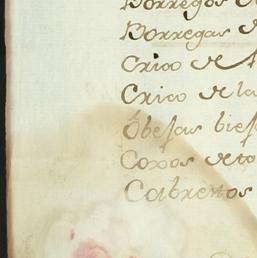 Borregos de
Borregas d
Crico de
Crico de la
Obejas biej
Coxos de to
Cabrettos